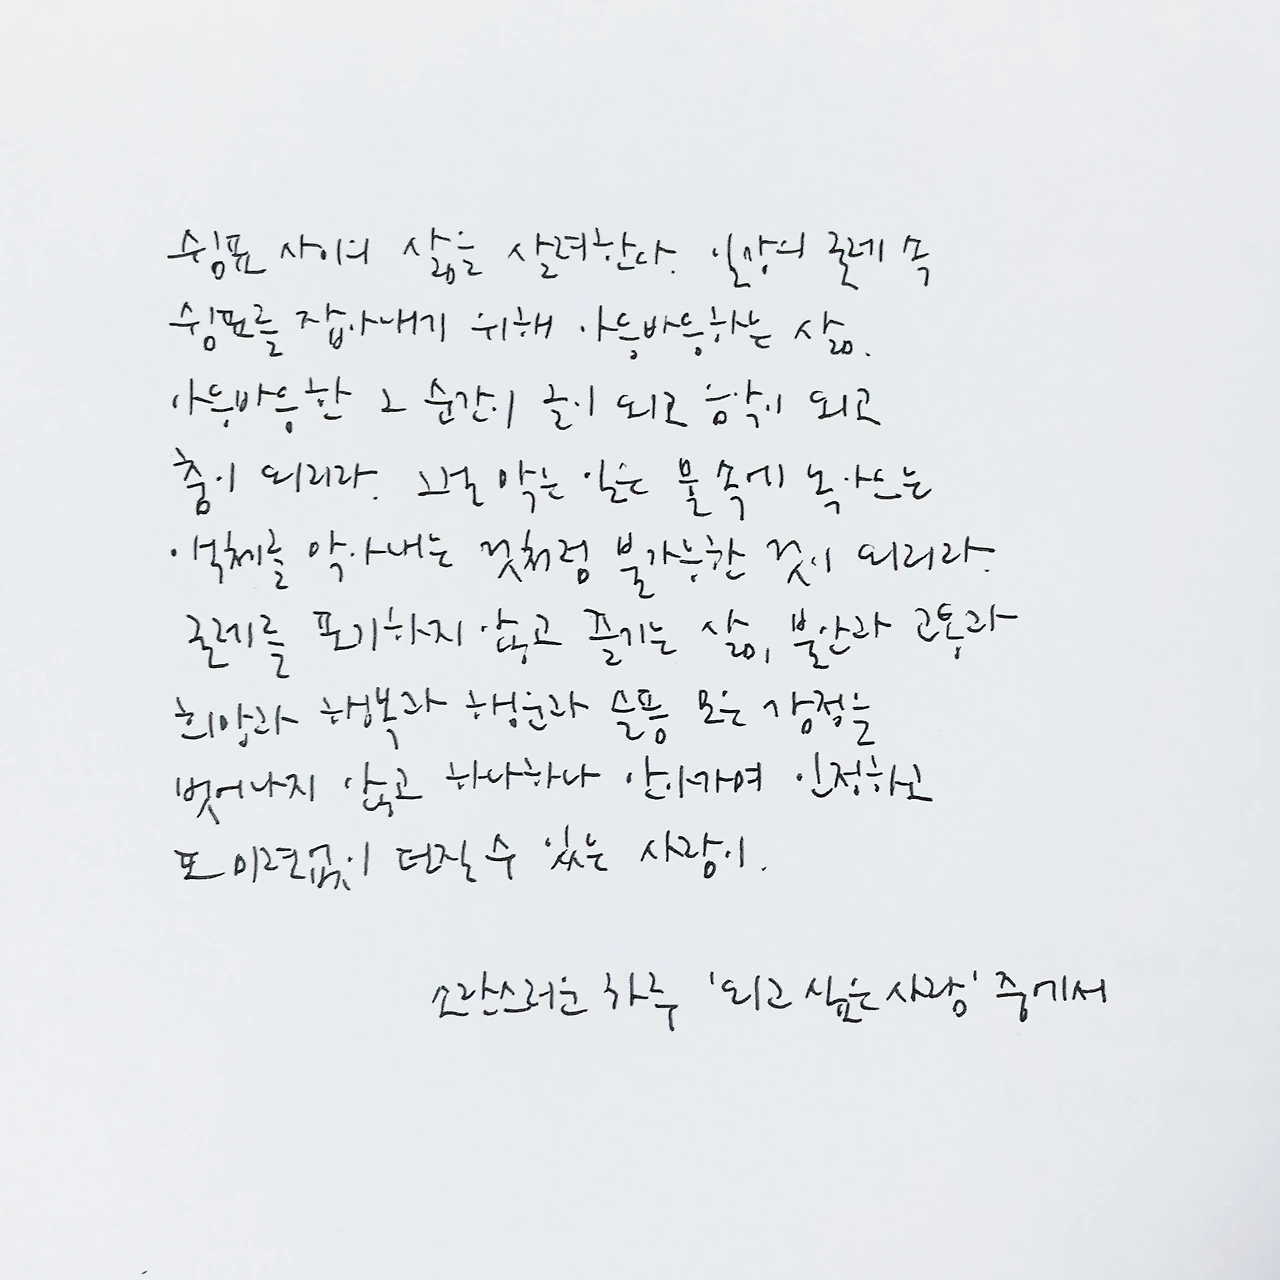 쉼표 사이의 삶을 살려한다. 일상의 굴레 속
쉼표를 잡아내기 위해 아등바등하는 삶.
아등바등한 그 순간이 글이 되고 음악이 되고
춤이 되리라. 그걸 막는 일은 물 속에 녹아드는
액체를 막아내는 것처럼 불가능한 것이 되리라.
굴레를 포기하지 않고 즐기는 삶, 불안과 고통과
희망과 행복과 행운과 슬픔 모든 감정을
벗어나지 않고 하나하나 안아가며 인정하고
또 미련없이 던질 수 있는 사람이.
소란스러운 하루 '되고 싶은 사람' 중에서